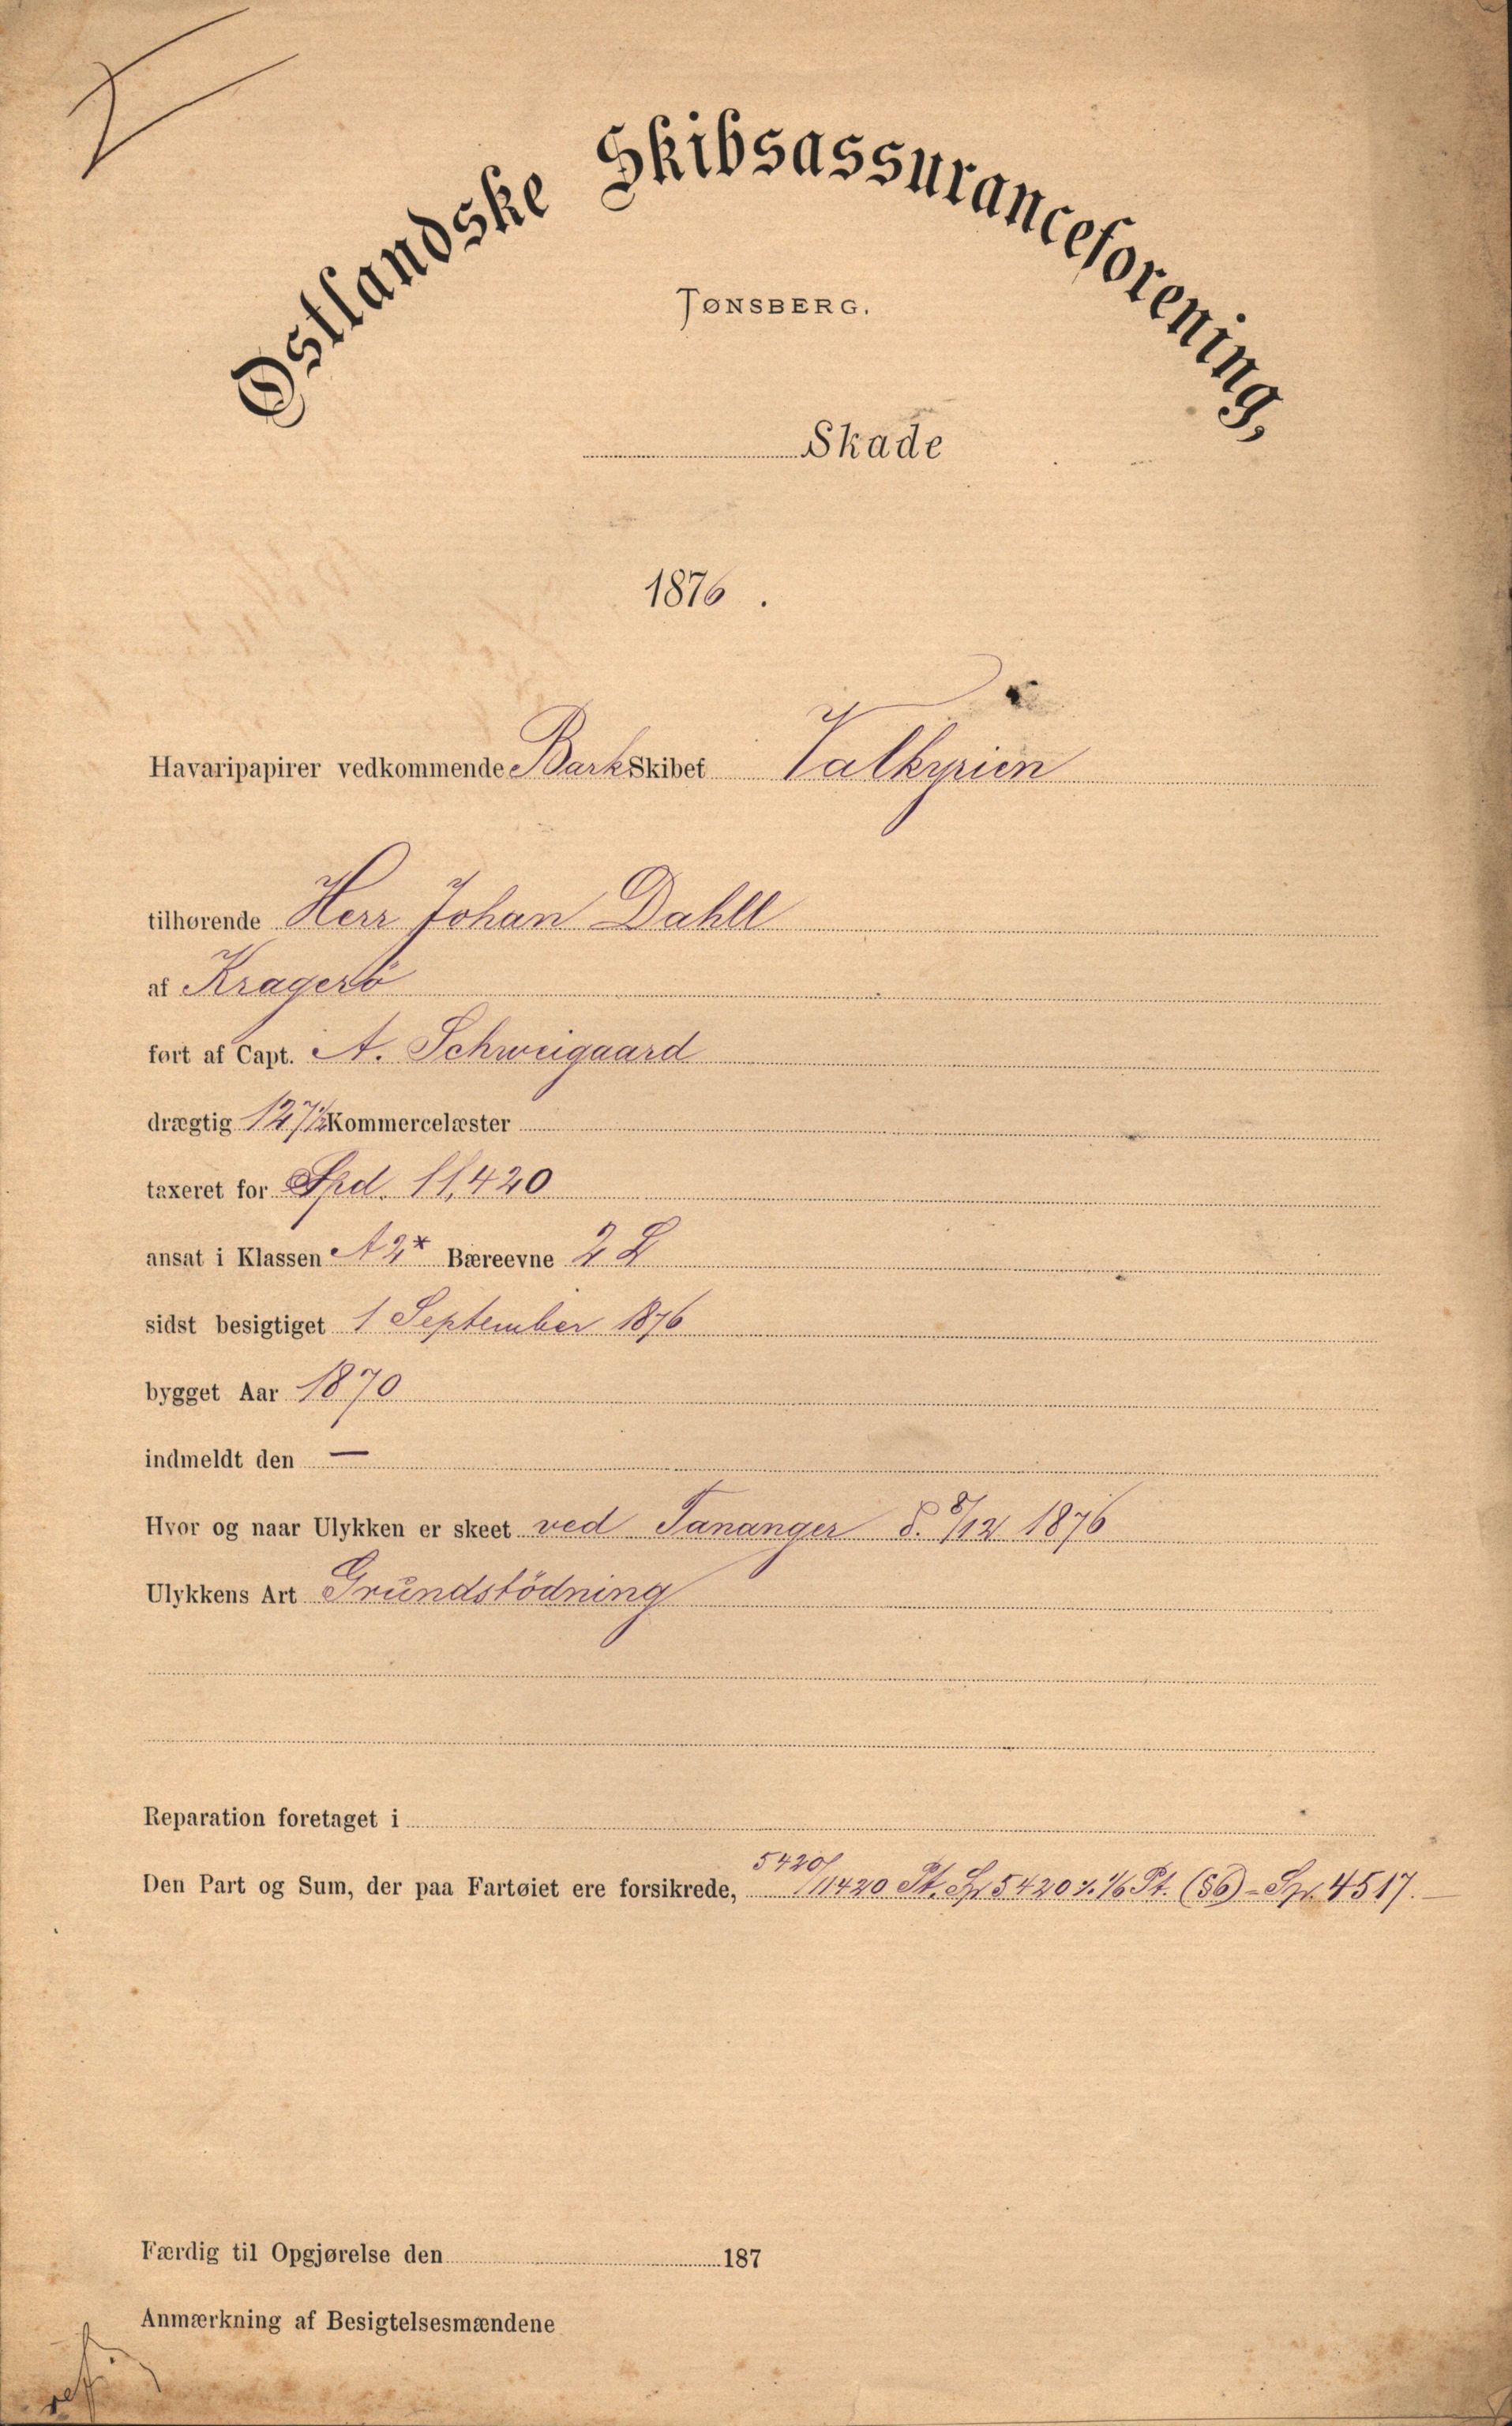 Østlandske Skibsassuranceforening,
TØNSBERG.
Skade
1876.
Havaripapirer vedkommende Bark Skibet Valkyrien
tilhørende Herr Johan Dahll
af Kragerö
ført af Capt. A. Schweigaard
drægtig 127½ Kommercelæster
taxeret for Spd. 11,420
ansat i Klassen A2* Bæreevne 2 L
sidst besigtiget 1 September 1876
bygget Aar 1870
indmeldt den —
Hvor og naar Ulykken er skeet ved Tananger d. 8/12 1876
Ulykkens Art Grundstödning
Reparation foretaget i
Den Part og Sum, der paa Fartøiet ere forsikrede, 5420/11420 Pt. Sp 5420 ÷ 1/6 Pt. (§6) = Sp. 4517.—
Færdig til Opgjørelse den 187
Anmærkning af Besigtelsesmændene
ref